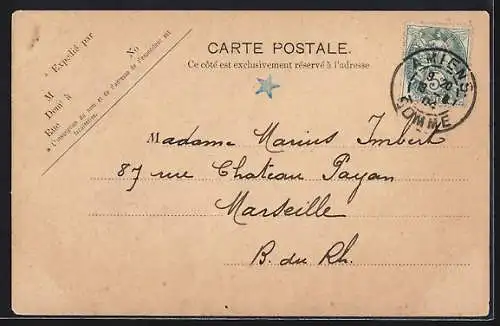 * Expédié par
No
M
Donné à
Rue
* L'inscription du nom et de l'adresse de l'expéditeur est
CARTE POSTALE.
Ce côté est exclusivement réservé à l'adresse
AMIENS
SOMME
Madame Marius Imbert
87 rue Chateau Payan
Marseille
B. du Rh.